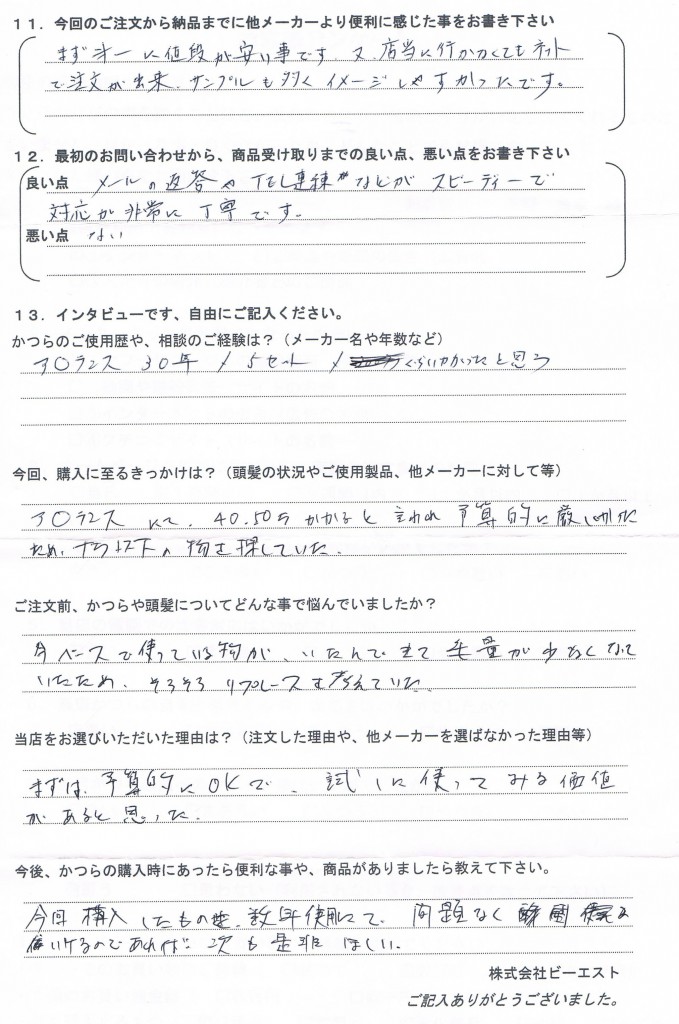 １１．今回のご注文から納品までに他メーカーより便利に感じた事をお書き下さい
まず才一に値段が安い事です。又、店当に行かなくてもネット
で注文が出来、サンプルも多くイメージしやすかったです。
１２．最初のお問い合わせから、商品受け取りまでの良い点、悪い点をお書き下さい
良い点 メールの返答やTEL連絡などがスピーディーで
対応が非常に丁寧です。
悪い点 ない
１３．インタビューです、自由にご記入ください。
かつらのご使用歴や、相談のご経験は？（メーカー名や年数など）
ア〇ランス 30年 / 5セット / くらいかかったと思う
今回、購入に至るきっかけは？（頭髪の状況やご使用製品、他メーカーに対して等）
ア〇ランス にて、40.50万かかると言われ予算的に厳しかった
ため、以下の物を探していた。
ご注文前、かつらや頭髪についてどんな事で悩んでいましたか？
今ベースで使っている物が、いたんできて毛量が少なくなって
いたため、そろそろリプレースを考えていた。
当店をお選びいただいた理由は？（注文した理由や、他メーカーを選ばなかった理由等）
まずは、予算的にOKで、試しに使ってみる価値
があると思った。
今後、かつらの購入時にあったら便利な事や、商品がありましたら教えて下さい。
今回購入したもの、数年使用にて、問題なく
使いけるのであれば次も是非ほしい。
株式会社ビーエスト
ご記入ありがとうございました。